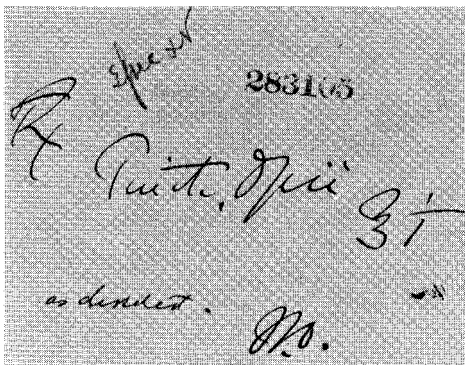 283105
Rx
Tinct. Opii ℥ i
as directed.